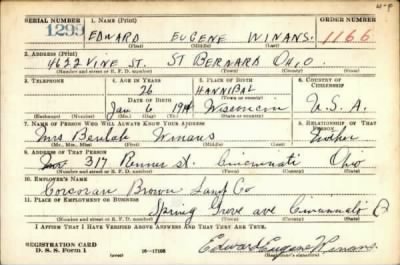 W-9
SERIAL NUMBER 1. NAME (Print) ORDER NUMBER
1299 EDWARD EUGENE WINANS. 1166
(First) (Middle) (Last)
2. ADDRESS (Print)
4622 VINE ST. ST BERNARD OHIO.
(Number and street or R. F. D. number) (Town) (County) (State)
3. TELEPHONE 4. AGE IN YEARS 5. PLACE OF BIRTH 6. COUNTRY OF CITIZENSHIP
26 HANNIBAL
(Town or county)
DATE OF BIRTH
Jan 6 1914 Wisconsin U.S.A.
(Exchange) (Number) (Mo.) (Day) (Yr.) (State or country)
7. NAME OF PERSON WHO WILL ALWAYS KNOW YOUR ADDRESS 8. RELATIONSHIP OF THAT PERSON
Mrs Beulah Winans Mother
(Mr., Mrs., Miss) (First) (Middle) (Last)
9. ADDRESS OF THAT PERSON
317 St. Cincinnati Ohio
(Number and street or R. F. D. number) (Town) (County) (State)
10. EMPLOYER'S NAME
Corcoran Brown Lamp Co
11. PLACE OF EMPLOYMENT OR BUSINESS
Spring Grove ave Cincinnati O
(Number and street or R. F. D. number) (Town) (County) (State)
I AFFIRM THAT I HAVE VERIFIED ABOVE ANSWERS AND THAT THEY ARE TRUE.
REGISTRATION CARD
D. S. S. Form 1 16—17105 Edward Eugene Winans.
(Registrant's signature)